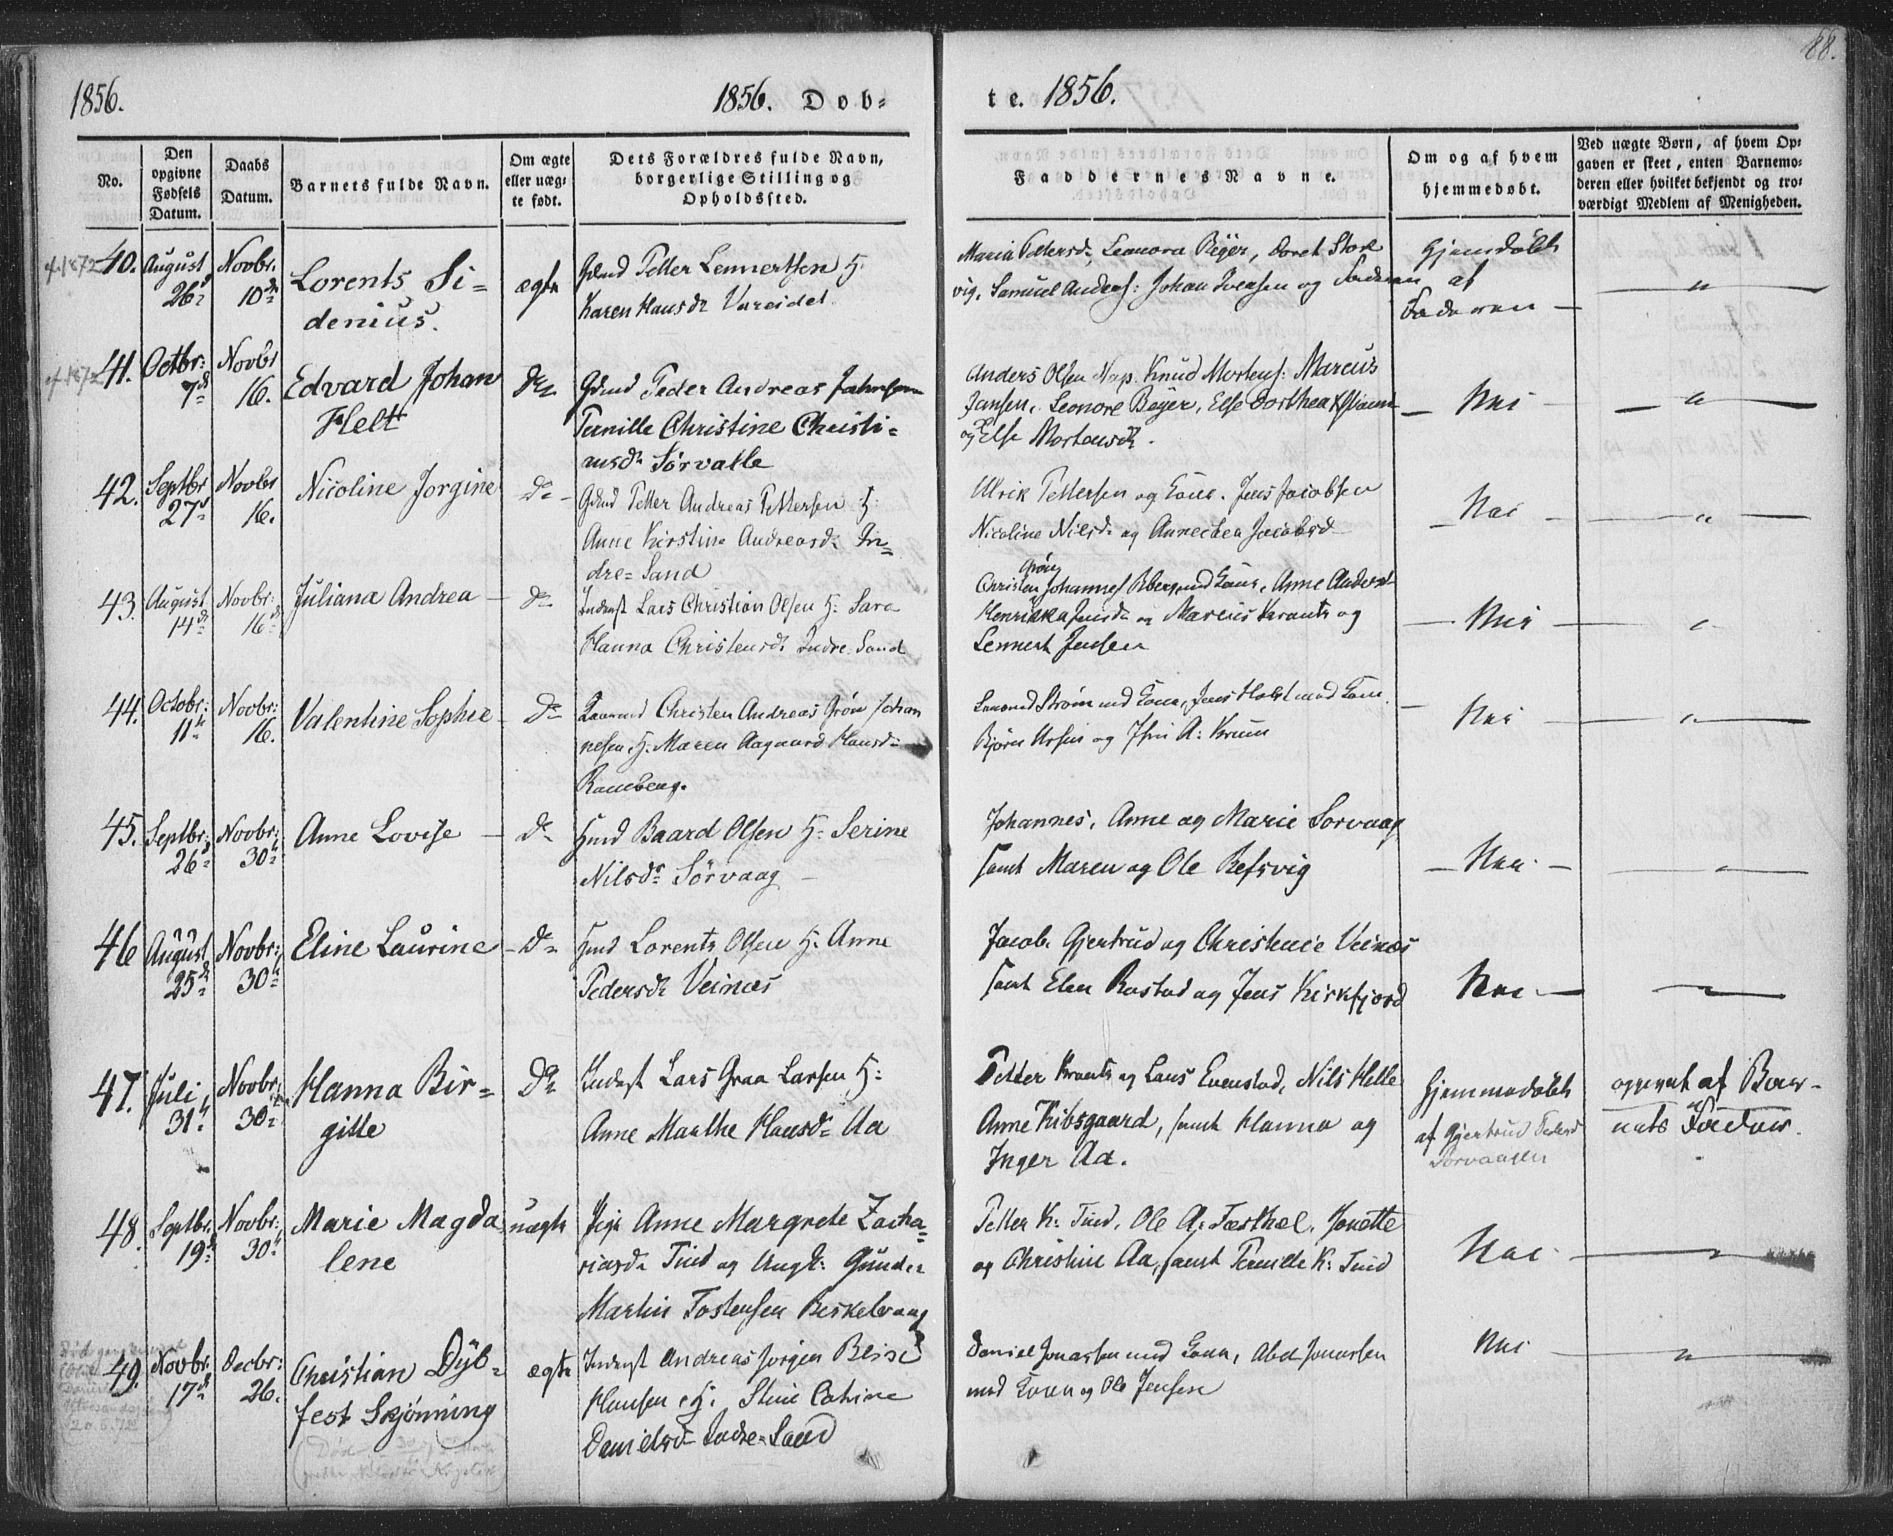 1856.
1856. Dob-
te. 1856.
88.
No.
Den
opgivne
Fødsels
Datum.
Daabs
Datum.
Barnets fulde Navn.
Om ægte
eller uæg-
te født.
Dets Forældres fulde Navn,
borgerlige Stilling og
Opholdssted.
Faddernes Navne.
Om og af hvem
hjemmedøbt.
Ved uægte Børn, af hvem Op-
gaven er skeet, enten Barnemo-
deren eller hvilket bekjendt og tro-
værdigt Medlem af Menigheden.
40. August
26
Novbr.
10
Lorents Si-
denius.
ægte
Petter Lennertsen H:
Karen Hansd Vareidet
Maria Pettersd, Leonora Beyer, Doret Store
vig, Samuel Anders: Johan Ivensen og Faderen
Hjemdøbt
af
Faderen
41. Octbr:
7
Novbr
16.
Edvard Johan
Helt
Do
Gdmd Peder Andreas Jahnsen
Pernille Christine Christi-
ansd Sørvatle
Anders Olsen Nap. Knud Mortens: Marcus
Jansen, Leonore Beyer, Else Dorthea
og Else Mortensd.
Nei
42. Septbr
27
Novbr
16.
Nicoline Jorgine
Do
Gdmd Petter Andreas Pettersen H:
Anne Kirstine Andreasd In-
dre-Sand
Ulrik Pettersen og Kone. Jens Jacobsen
Nicoline Nilsd og Annechen Jacobsd
Nei
43. August
14
Novbr:
16
Juliana Andrea
Do
Inderst Lars Christian Olsen H: Sara
Hanna Christensd Indre Sand
Grön
Christen Johannes Kone, Anne Andersd
Henrikka Jensd og Marcus Krantz og
Lennert Jensen
Nei
44. Octobr:
11
Novbr:
16.
Valentine Sophie
Do
Christen Andreas Grön Johan
nesen, H: Maren Aagaard Hansd
Ramberg.
Strøm med Kone, Jens Holst med Kone.
Bjørn Ursin og A: Krum
Nei
45. Septbr:
26
Novbr:
30
Anne Lovise
Do
Hmd Baard Olsen H: Serine
Nilsdr Sörvaag
Johannes, Anne og Marie Sorvaag
samt Maren og Ole Refsvig
Nei
46 August
25
Novbr:
30
Eline Laurine
Do
Hmd Lorents Olsen H: Anne
Pedersd Veines
Jacob. Gjertrud og Christence Veines
samt Elen Rostad og Jens Kirkfjord
Nei
47. Juli
31
Novbr:
30
Hanna Bir-
gitte
Do
Inderst Lars Graa Larsen H:
Anne Marthe Hansd Aa
Petter Krantz og Lars Evenstad, Nils Helle
Anne Kibsgaard, samt Hanna og
Inger Aa.
Hjemmedøbt
af Gjertrud Pedersd
Sorvaagen
opgivet af Bar-
nets Fader.
48. Septbr.
19
Novbr:
30
Marie Magda
lene
uægte
Pige Anne Margrete Zacha-
riasd Tind og Ungk: Gunder
Martin Tostensen Berkelvaag
Petter K: Tind, Ole A: Tæsthel. Jonette
og Christine Aa, samt Pernille K: Tind
Nei
49. Novbr.
17
Decbr:
26.
Christian Dyb-
fest Skjønning
ægte
Inderst Andreas Jørgen Beise
Hansen H: Stine Catrine
Danielsd Indre-Sand
Daniel Jonassen med Kone, Abel Jonassen
med Kone og Ole Jensen
Nei